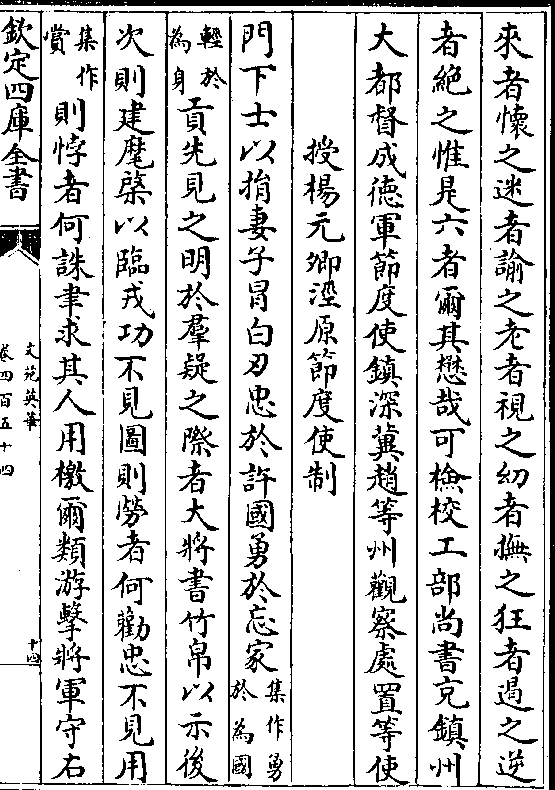 來者懷之迷者諭之老者視之幼者撫之狂者遏之逆
者絶之惟是六者爾其懋哉可檢校工部尚書充鎮州
大都督成徳軍節度使鎮深冀趙等州觀察處置等使
授楊元卿涇原節度使制
門下士以捐妻子冒白刃忠於許國勇於忘家集作勇於為國
輕於為身貢先見之明於羣疑之際者大將書竹帛以示後
次則建麾棨以臨戎功不見圖則勞者何勸忠不見用
集作賞則悖者何誅聿求其人用檄爾類游擊將軍守右
欽定四庫全書
文苑英華
卷四百五十四
十四